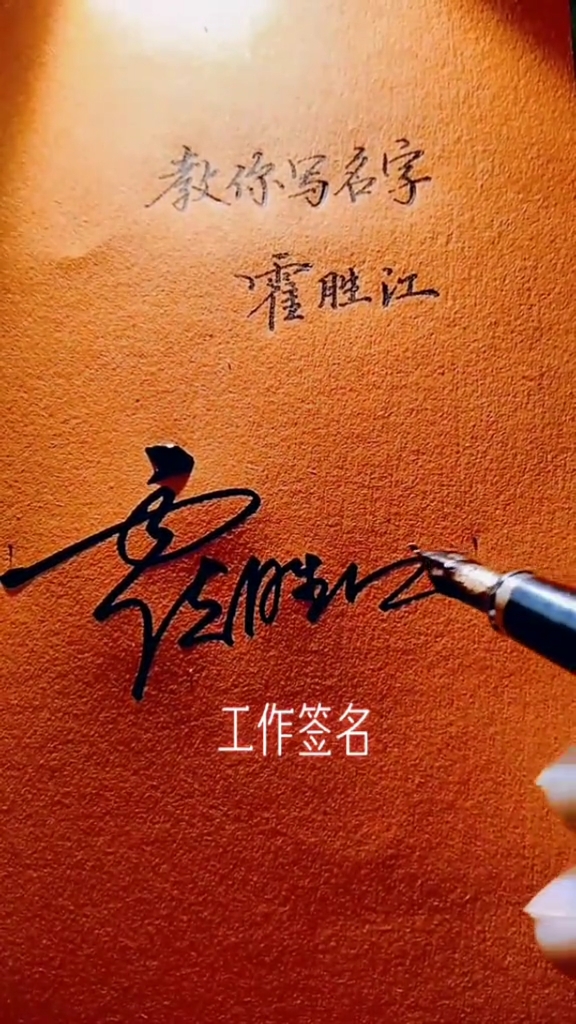 教你写名字
霍胜江
霍胜江
工作签名